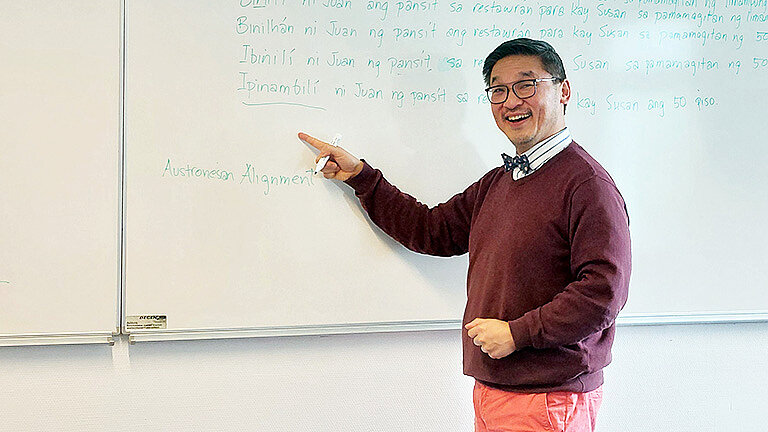 Binili ni Juan ang pansit sa restawran para kay Susan sa pamamagitan ng
Binilhán ni Juan ng pansit ang restawrán para kay Susan sa pamamagitan ng 50
Ibinilí ni Juan ng pansit sa Susan sa pamamagitan ng 50
Ipinambilí ni Juan ng pansit sa kay Susan ang 50 piso.
Austronesian Alignment